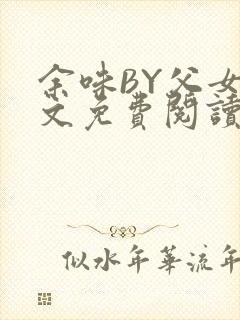 余味BY父女
文免費閱讀
似水年華流年